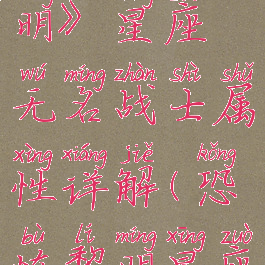 明》 星座
wú míng zhàn shì shǔ
无名战士属
xìng xiáng jiě kǒng
性详解(恐
bù lí míng xīng zuò
怖黎明星座